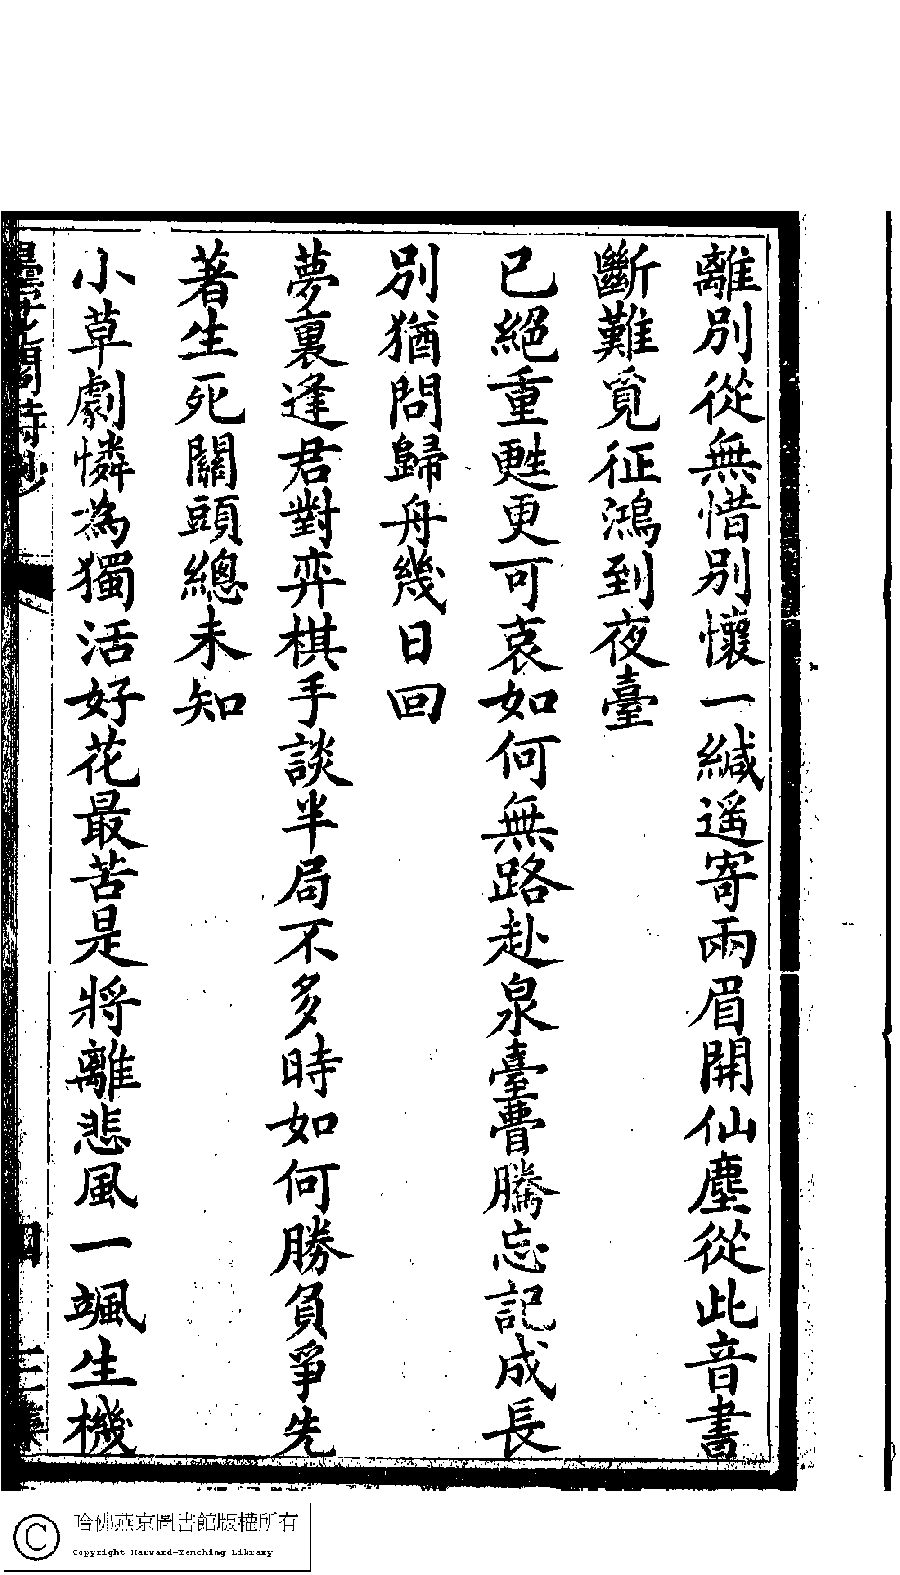 離別從無惜別懷一緘遥寄兩眉開仙塵從此音書
斷難覓征鴻到夜臺
已絕重甦更可哀如何無路赴泉臺瞢騰忘記成長
別猶問歸舟幾日回
夢裏逢君對弈棋手談半局不多時如何勝負爭先
著生死關頭總未知
小草劇憐為獨活好花最苦是將離悲風一颯生機
四
哈佛燕京圖書館版權所有
Copyright Harvard-Yenching Library